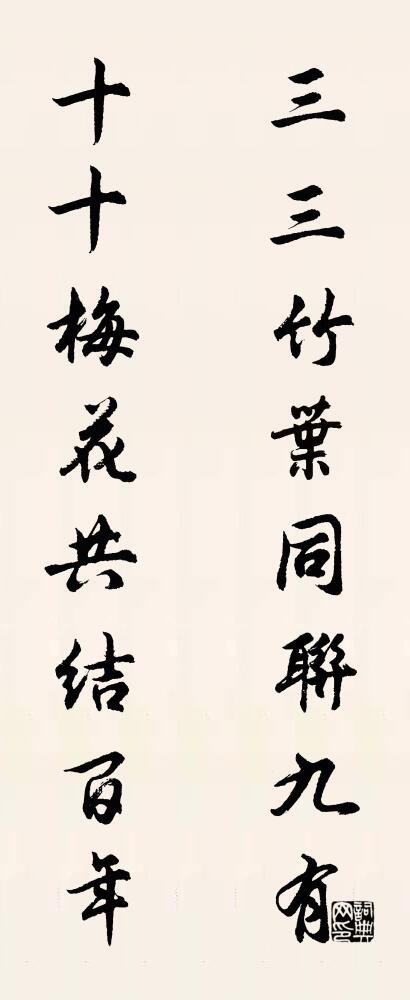 三三竹葉同聯九有
十十梅花共结百年
詞典
网印